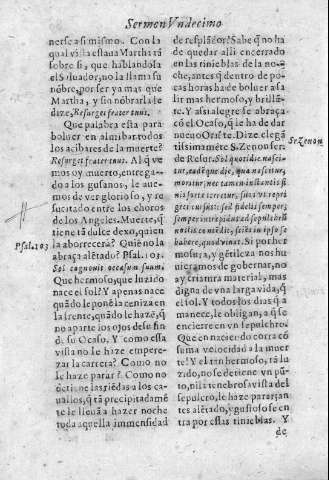 Sermon Vndecimo
nerse a si mismo. Con la
qual vista estaua Martha tã
sobre si, que hablandola
el Saluador, no la llama su
nõbre, por ser ya mas que
Martha, y sin nõbrarla le
dize, Resurget frater tuus.
Que palabra esta para
boluer en almibar todos
los acibares de la muerte?
Resurget frater tuus. Al q̃ ve
mos oy muerto, entrega-
do a los gusanos, le aue-
mos de ver glorioso, y re
sucitado entre los choros
de los Angeles. Muerte, q̃
tiene tã dulce dexo, quien
Psal. 103
la aborrecerà? Quiẽ no la
abraça alẽtado? Psal. 103.
Sol cognouit occasum suum.
Que hermoso, que luzido
nace el sol? Y apenas nace
quãdo le ponẽ la ceniza en
la frente, quãdo le hazẽ, q̃
no aparte los ojos desu fin
de su Ocaso. Y como essa
vista no le haze empere-
zar la carrera? Como no
le haze parar? Como no
detiene las riẽdas a los ca-
uallos, q̃ tã precipitadamẽ
te le lleuã a hazer noche
toda aquella immensidad
de resplãdor? Sabe q̃ no ha
de quedar alli encerrado
en las tinieblas de la no-
che, antes q̃ dentro de po-
cas horas ha de boluer a sa
lir mas hermoso, y brillã-
te. Y assi alegre se abraça
cõ el Ocaso, q̃ le ha de dar
nueuo Oriẽte. Dize elegã
S. Zenon
tissimamẽte S. Zenon ser.
de Resur. Sol quotidie nasci-
tur, eadẽque die, qua nascitur,
moritur; nec tamen instantis fi
nis sorte terretur,
semper intrepidus ad sepulchrũ
noctis contẽdit, sciẽs in ipso se
habere, quod viuat. Si por her
mosura, y gẽtileza nos hu
uieramos de gobernar, no
ay criatura material, mas
digna de vna larga vida, q̃
el sol. Y todos los dias q̃ a
manece, le obligan, a q̃ se
encierre en vn sepulchro.
Que en naciendo corra cõ
suma velocidad a la muer
te! Y el tan hermoso, tã lu
zido, no se detiene vn pũ-
to, ni la tenebrosa vista del
sepulcro, le haze parar; an
tes alẽtado, y gustoso se en
tra por estas tinieblas. Y
de